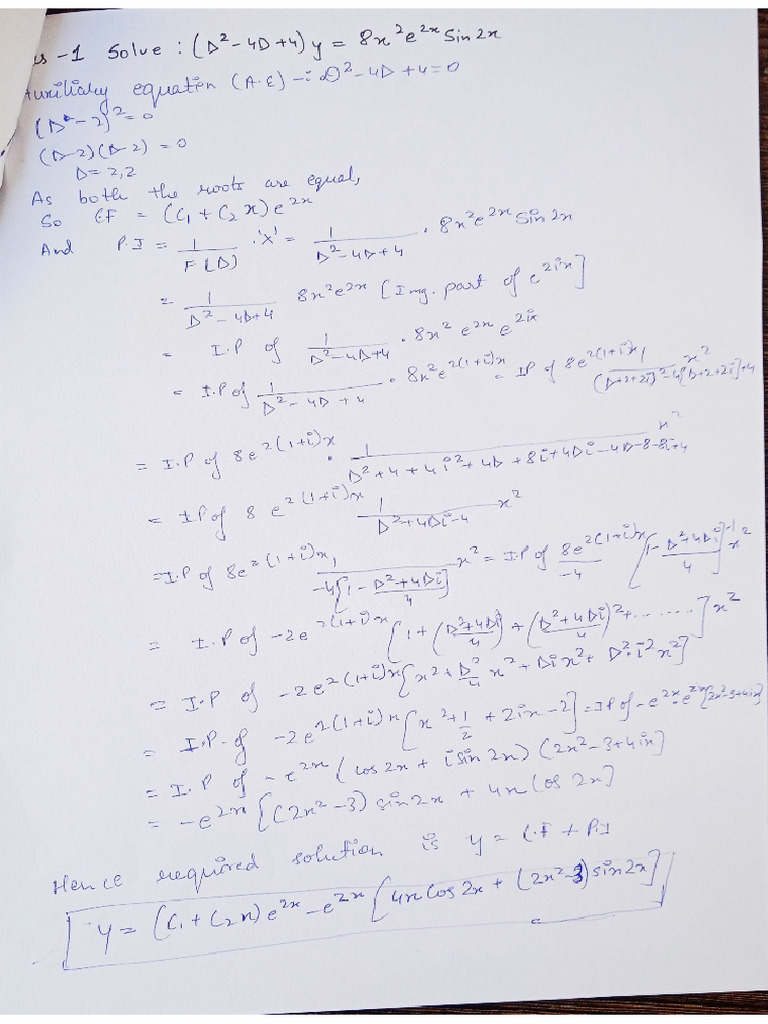 us-1 Solve : (D² - 4D + 4) y = 8x²e²ˣ Sin 2x
Auxiliary equation (A.E) -: D² - 4D + 4 = 0
(D - 2)² = 0
(D-2)(D-2) = 0
D = 2, 2
As both the roots are equal,
So CF = (C₁ + C₂ x) e²ˣ
And P.I = 1/F(D) . 'X' = 1/(D² - 4D + 4) . 8x²e²ˣ Sin 2x
= 1/(D² - 4D + 4) 8x²e²ˣ [Img. part of e²ⁱˣ]
= I.P of 1/(D² - 4D + 4) . 8x² e²ˣ e²ⁱˣ
= I.P of 1/(D² - 4D + 4) . 8x² e^2(1+i)x = IP of 8e^2(1+i)x 1/((D+2+2i)² - 4[D+2+2i] + 4) x²
= I.P of 8e^2(1+i)x . 1/(D² + 4 + 4i² + 4D + 8i + 4Di - 4D - 8 - 8i + 4) x²
= I.P of 8 e^2(1+i)x 1/(D² + 4Di - 4) x²
= I.P of 8e^2(1+i)x 1/(-4[1 - (D² + 4Di)/4]) x² = I.P of 8e^2(1+i)x/-4 [1 - (D² + 4Di)/4]⁻¹ x²
= I.P of -2e^2(1+i)x [1 + ((D² + 4Di)/4) + ((D² + 4Di)/4)² + ........] x²
= I.P of -2e^2(1+i)x [x² + D²/4 x² + Di x² + D².i² x²]
= I.P. of -2e^2(1+i)x [x² + 1/2 + 2ix - 2] = IP of -e²ˣ.e²ˣ [2x² - 3 + 4ix]
= I.P of -e²ˣ (cos 2x + i Sin 2x) (2x² - 3 + 4ix]
= -e²ˣ [(2x² - 3) sin 2x + 4x Cos 2x]
Hence required solution is y = C.F + P.I
y = (C₁ + C₂x) e²ˣ - e²ˣ [4x Cos 2x + (2x² - 3) sin 2x]